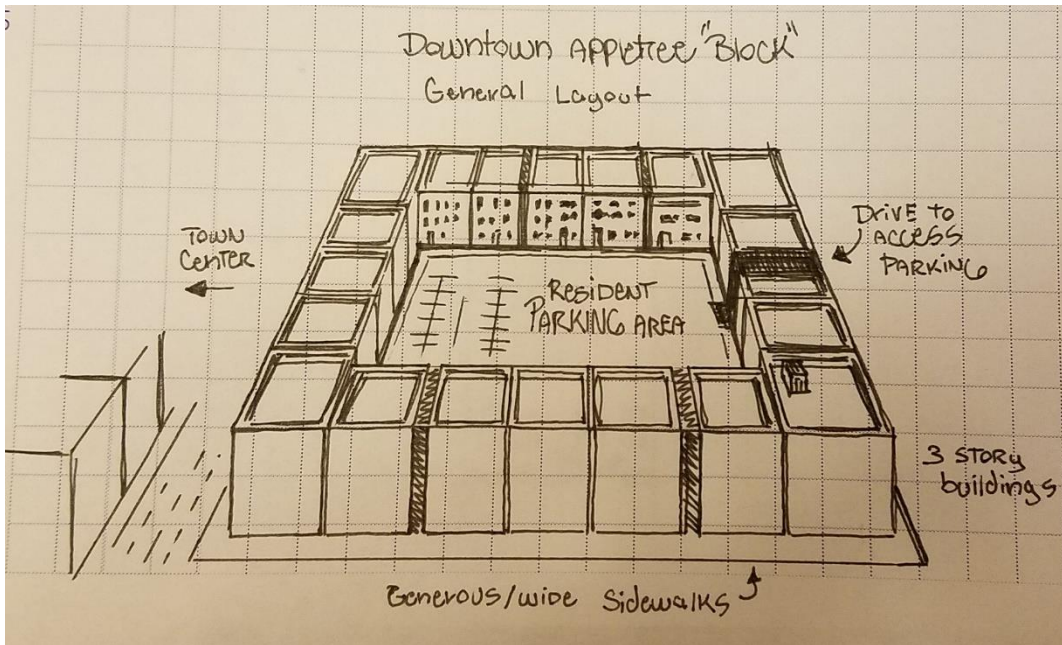 Downtown Appletree "Block"
General Layout
Town
Center
Drive to
Access
Parking
Resident
Parking Area
3 Story
buildings
Generous/wide Sidewalks